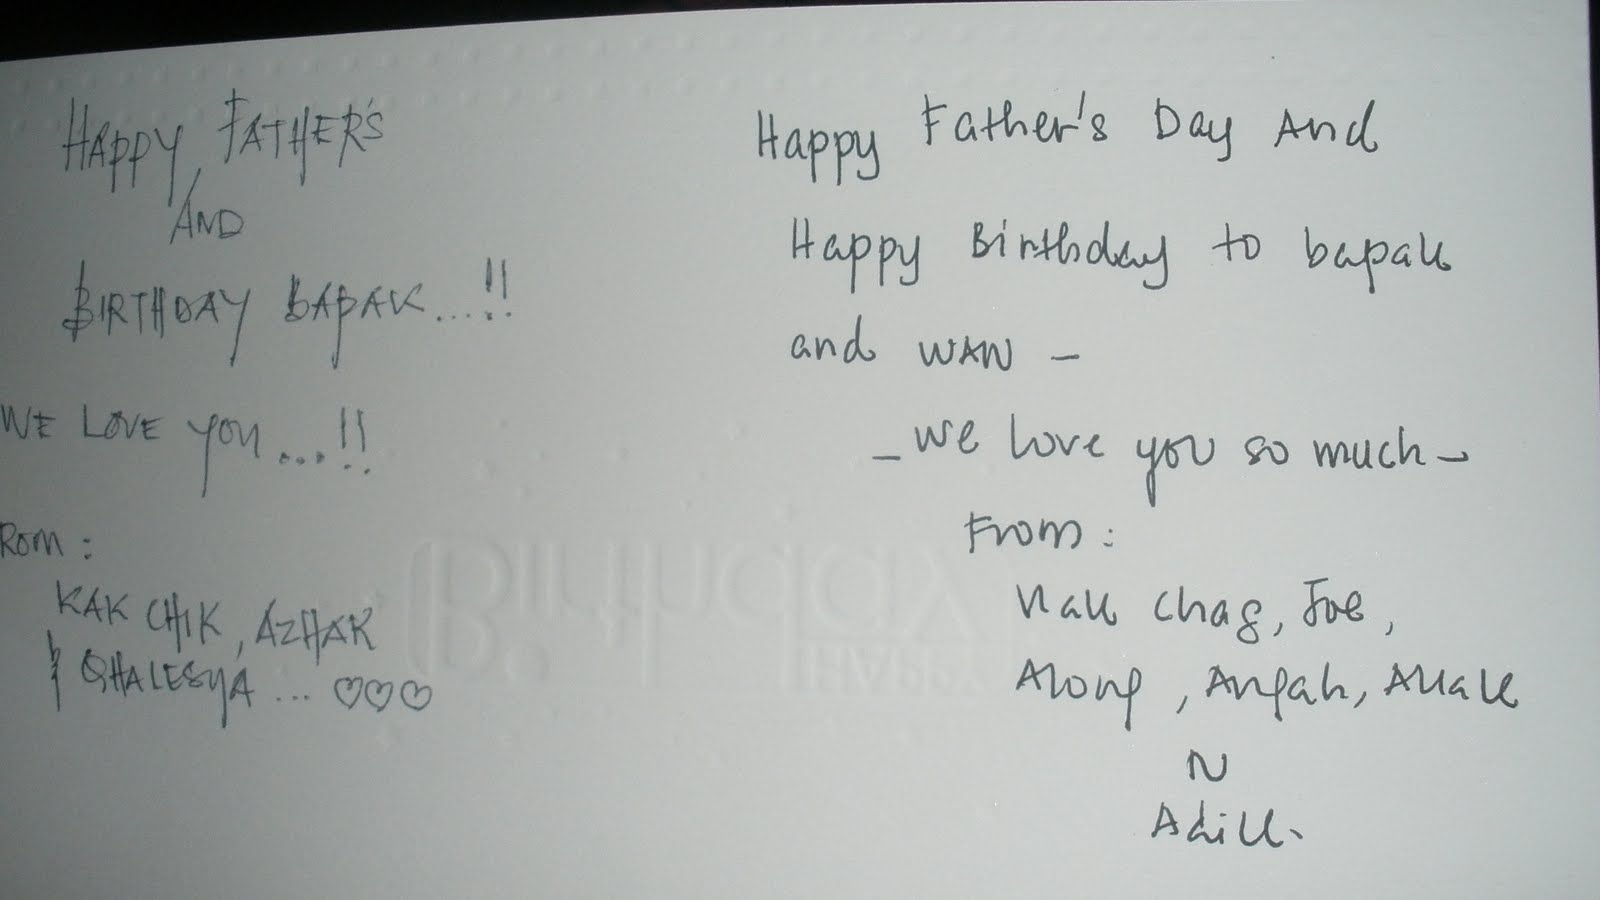 HAPPY FATHER'S
AND
BIRTHDAY BAPAK...!!
WE LOVE YOU...!!
ROM:
KAK CHIK, AZHAR
& QHALESYA ... ♡♡♡
Happy Father's Day And
Happy Birthday to bapak
and WAN –
– We love you so much –
From:
Kak Chag, Joe,
Along, Angah, Akak
N
Adik.